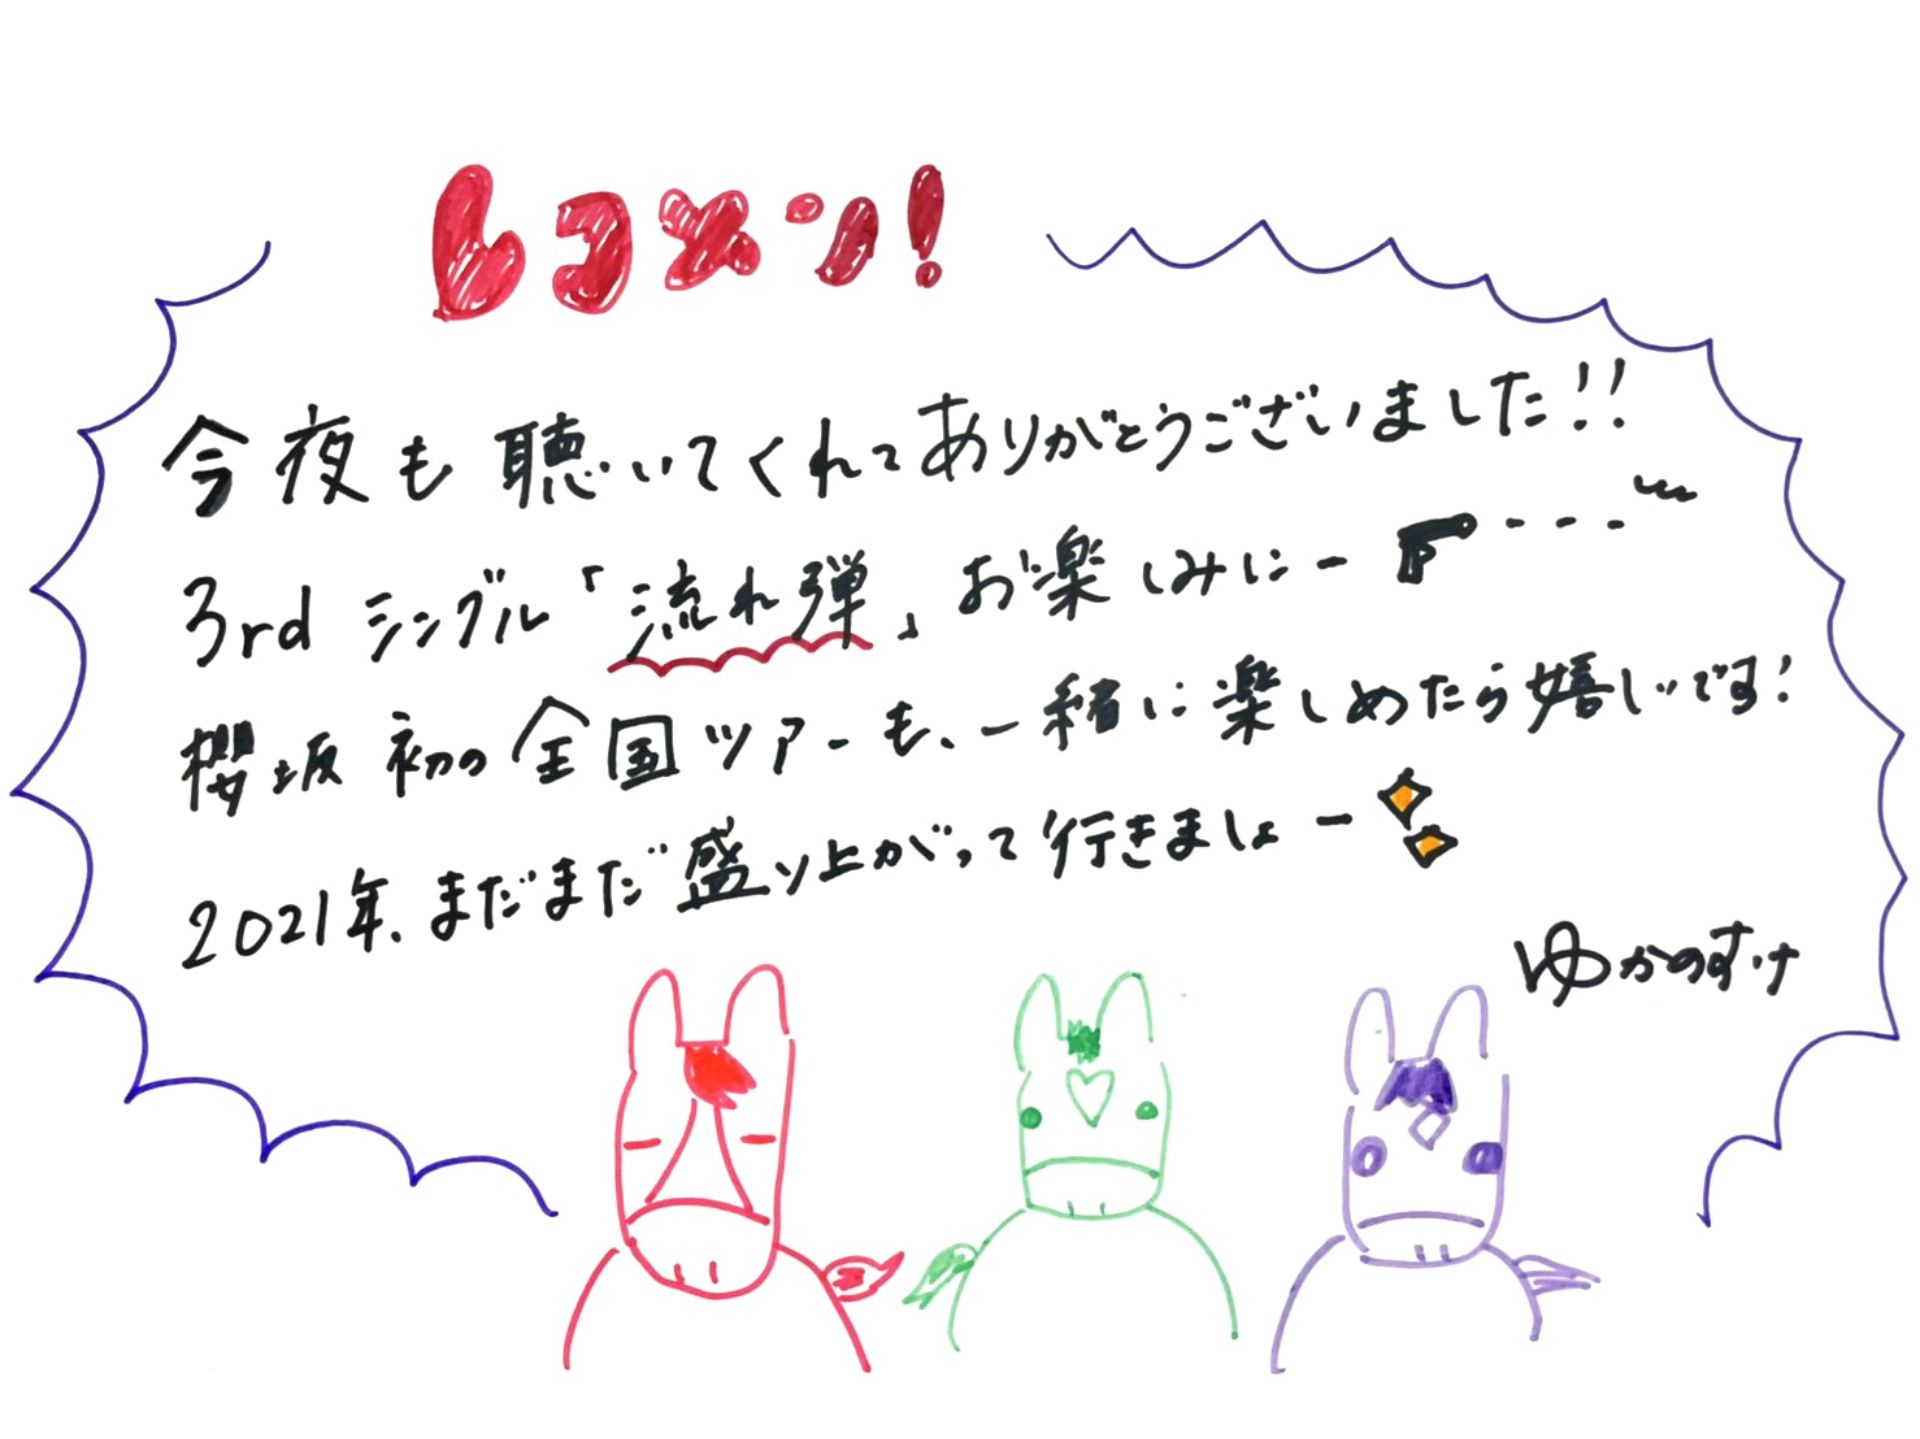 レコメン!
今夜も聴いてくれてありがとうございました!!
3rdシングル「流れ弾」お楽しみにー
櫻坂初の全国ツアーも、一緒に楽しめたら嬉しいです!
2021年、まだまだ盛り上がって行きましょー
ゆかのすけ